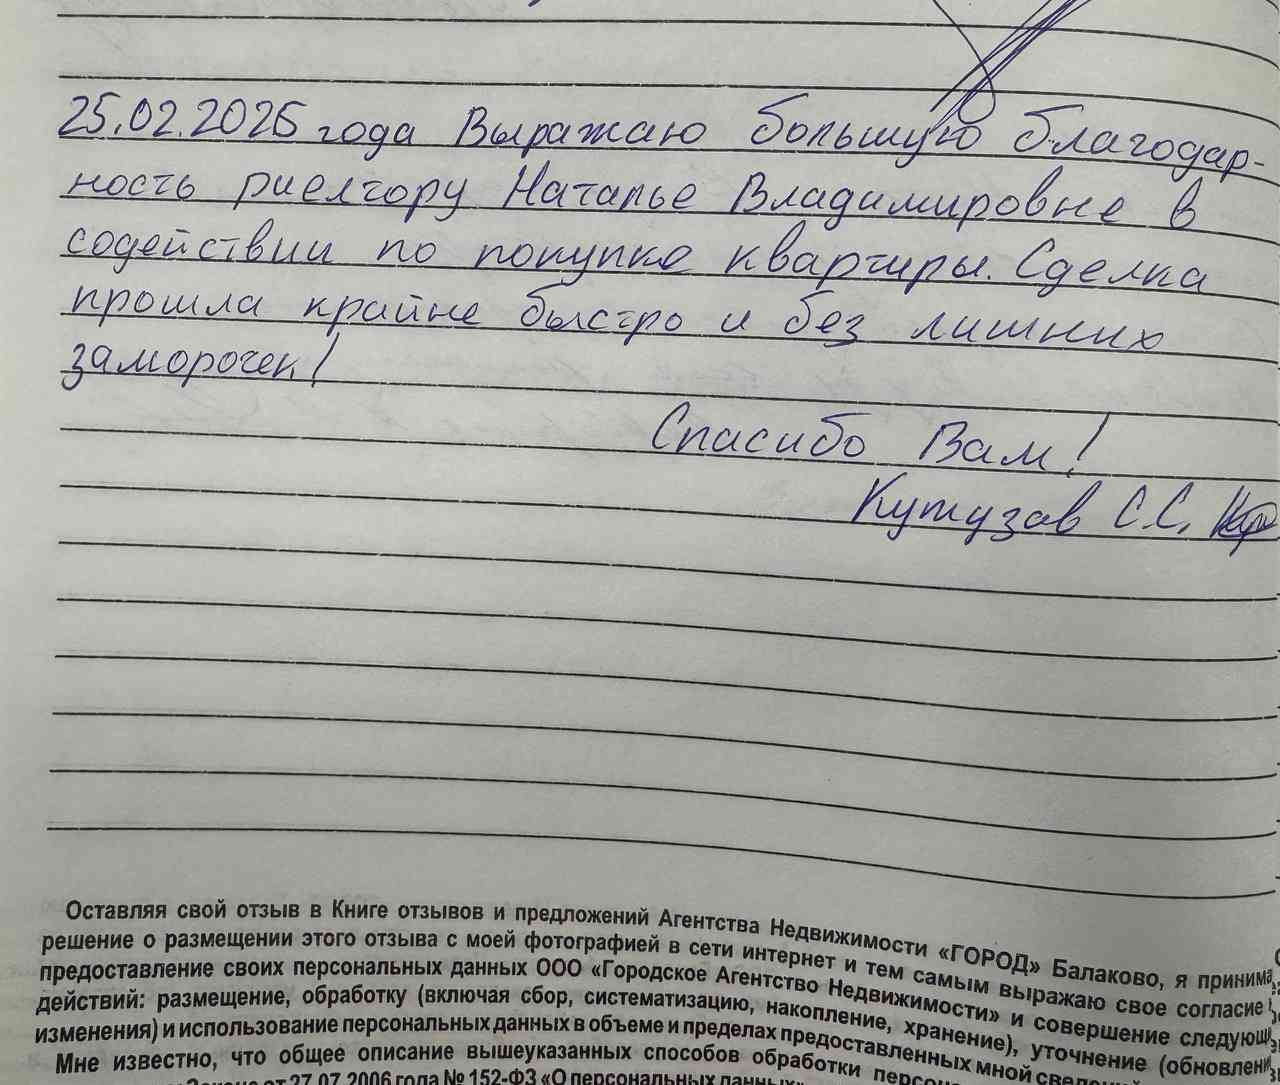 25.02.2025 года Выражаю большую благодар-
ность риелтору Наталье Владимировне в
содействии по покупке квартиры. Сделка
прошла крайне быстро и без лишних
заморочек!
Спасибо Вам!
Кутузов С.С.
Оставляя свой отзыв в Книге отзывов и предложений Агентства Недвижимости «ГОРОД» Балаково, я принима
решение о размещении этого отзыва с моей фотографией в сети интернет и тем самым выражаю свое согласие
предоставление своих персональных данных ООО «Городское Агентство Недвижимости» и совершение следующ
действий: размещение, обработку (включая сбор, систематизацию, накопление, хранение), уточнение (обновлени
изменения) и использование персональных данных в объеме и пределах предоставленных мной
Мне известно, что общее описание вышеуказанных способов обработки
от 27.07.2006 года № 152-ФЗ «О персональных данных»